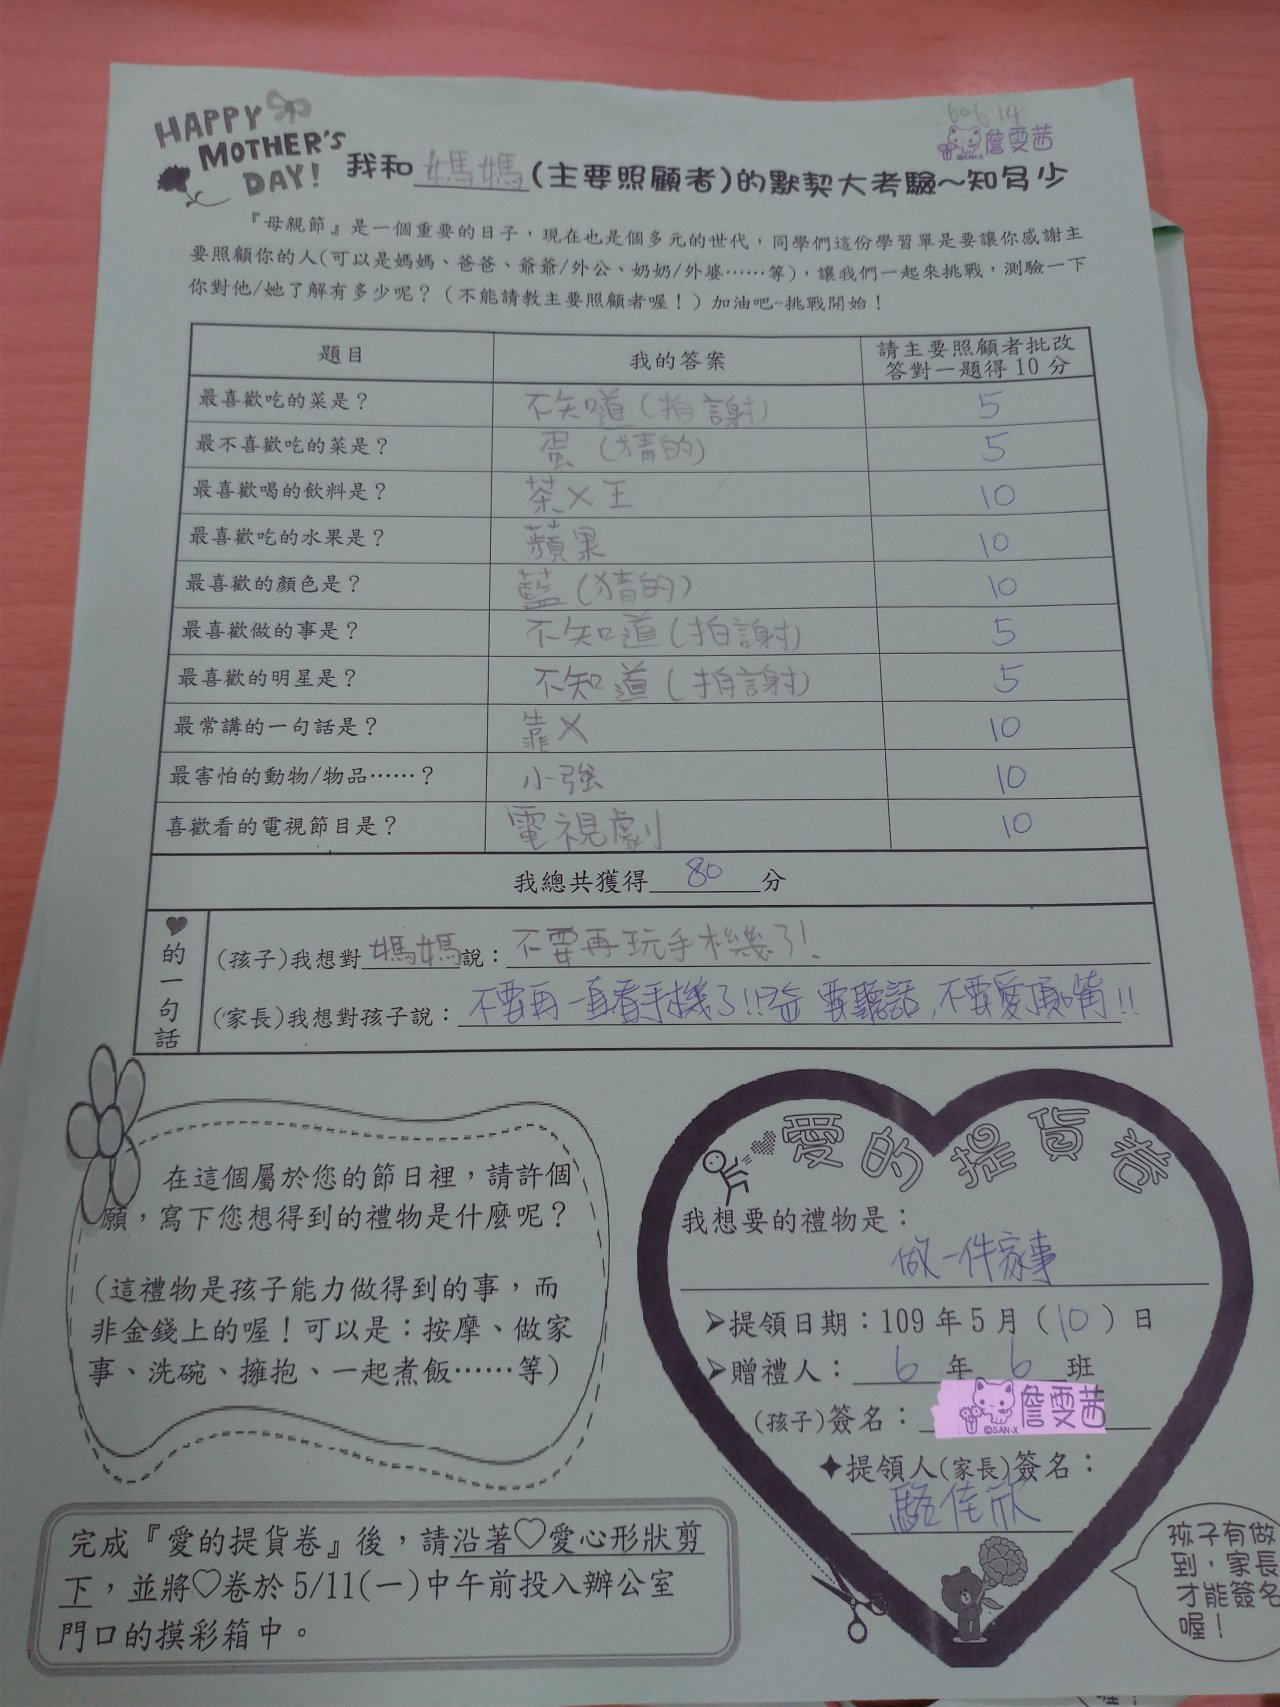 HAPPY
MOTHER'S
DAY!
606 14
詹雯茜
©SAN-X
我和媽媽(主要照顧者)的默契大考驗~知多少
『母親節』是一個重要的日子，現在也是個多元的世代，同學們這份學習單是要讓你感謝主
要照顧你的人(可以是媽媽、爸爸、爺爺/外公、奶奶/外婆……等)，讓我們一起來挑戰，測驗一下
你對他/她了解有多少呢？(不能請教主要照顧者喔！)加油吧~挑戰開始！
題目 我的答案 請主要照顧者批改
答對一題得10分
最喜歡吃的菜是？ 不知道(拍謝) 5
最不喜歡吃的菜是？ 蛋(猜的) 5
最喜歡喝的飲料是？ 茶X王 10
最喜歡吃的水果是？ 蘋果 10
最喜歡的顏色是？ 藍(猜的) 10
最喜歡做的事是？ 不知道(拍謝) 5
最喜歡的明星是？ 不知道(拍謝) 5
最常講的一句話是？ 靠X 10
最害怕的動物/物品……？ 小強 10
喜歡看的電視節目是？ 電視劇 10
我總共獲得80分
♥的一句話
(孩子)我想對媽媽說：不要再玩手機了!
(家長)我想對孩子說：不要再一直看手機了!! 要聽話,不要愛頂嘴!!
在這個屬於您的節日裡，請許個
願，寫下您想得到的禮物是什麼呢？
(這禮物是孩子能力做得到的事，而
非金錢上的喔！可以是：按摩、做家
事、洗碗、擁抱、一起煮飯……等)
完成『愛的提貨卷』後，請沿著♡愛心形狀剪
下，並將♡卷於5/11(一)中午前投入辦公室
門口的摸彩箱中。
愛的提貨卷
我想要的禮物是：
做一件家事
➤提領日期：109年5月(10)日
➤贈禮人：6年6班
(孩子)簽名：詹雯茜
©SAN-X
✦提領人(家長)簽名：
駱佳欣
孩子有做
到，家長
才能簽名
喔！